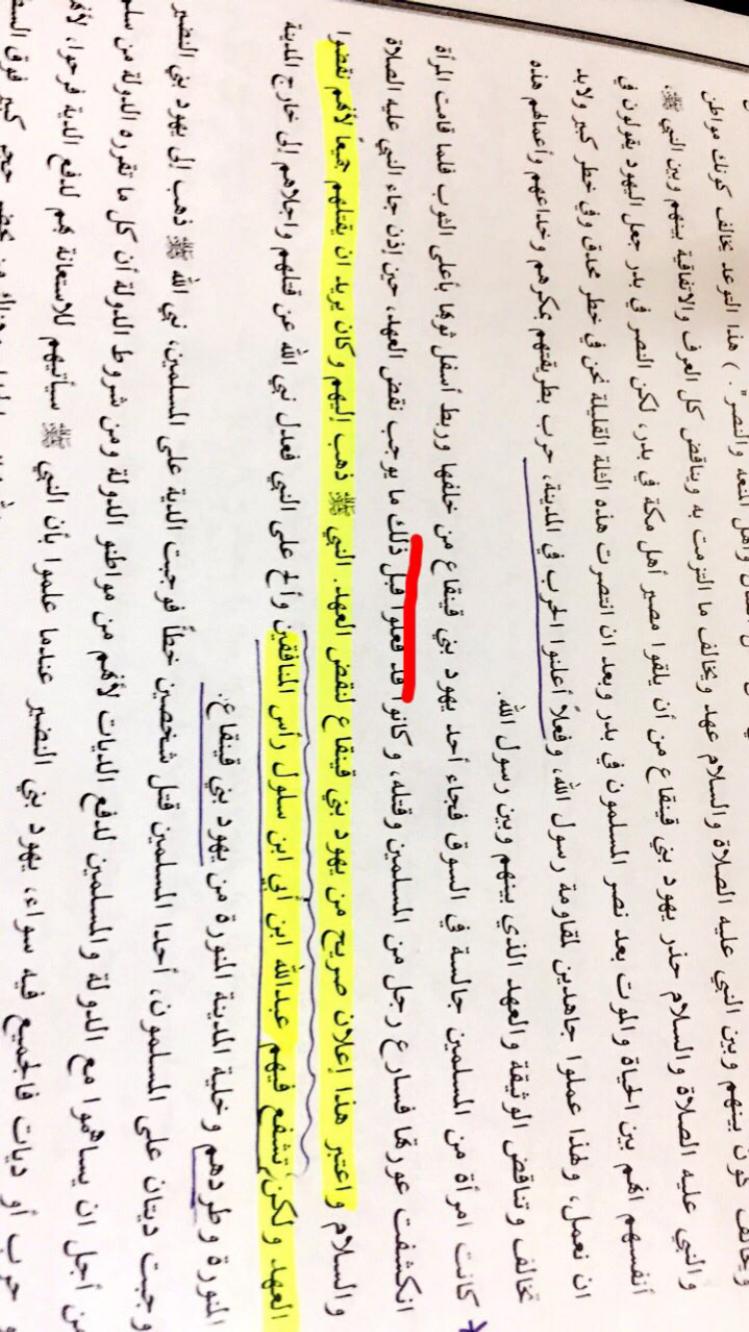 هذا التوعد يخالف كونك مواطن
ويخالف بينهم وبين النبي عليه الصلاة والسلام عهد ويخالف ما التزمت به ويناقض كل العرف والاتفاقية بينهم وبين النبي ﷺ،
والنبي عليه الصلاة والسلام حذر يهود بني قينقاع من أن يلقوا مصير أهل مكة في بدر، لكن النصر في بدر جعل اليهود يقولون في
أنفسهم انهم بين الحياة والموت بعد نصر المسلمون في بدر وبعد ان انتصرت هذه الثلة القليلة نحن في خطر محدق وفي خطر كبير ولابد
ان نعمل، ولهذا عملوا جاهدين لمقاومة رسول الله، وفعلاً أعلنوا الحرب في المدينة، حرب بطريقتهم بمكرهم وخداعهم وأعمالهم هذه
تخالف وتناقض الوثيقة والعهد الذي بينهم وبين رسول الله.
كانت امرأة من المسلمين جالسة في السوق فجاء أحد يهود بني قينقاع من خلفها وربط أسفل ثوبها بأعلى الثوب فلما قامت المرأة
انكشفت عورتها فسارع رجل من المسلمين وقتله، وكانوا قد فعلوا قبل ذلك ما يوجب نقض العهد، حين إذن جاء النبي عليه الصلاة
والسلام واعتبر هذا إعلان صريح من يهود بني قينقاع لنقض العهد. النبي ﷺ ذهب إليهم وكان يريد ان يقتلهم جميعاً لأنهم نقضوا
العهد ولكن تشفع فيهم عبدالله ابن أبي ابن سلول رأس المنافقين وألح على النبي فعدل نبي الله عن قتلهم واجلاهم الى خارج المدينة
المنورة وطردهم وخلية المدينة المنورة من يهود بني قينقاع.
وجبت ديتان على المسلمون، أحدا المسلمين قتل شخصين خطأ فوجبت الدية على المسلمين، نبي الله ﷺ ذهب إلى يهود بني النضير
من أجل ان يساهموا مع الدولة والمسلمين لدفع الديات لأنهم من مواطنو الدولة ومن شروط الدولة أن كل ما تقرره الدولة من
حرب أو ديات فالجميع فيه سواء، يهود بني النضير عندما علموا بأن النبي ﷺ سيأتيهم للاستعانة بهم لدفع الدية فرحوا،